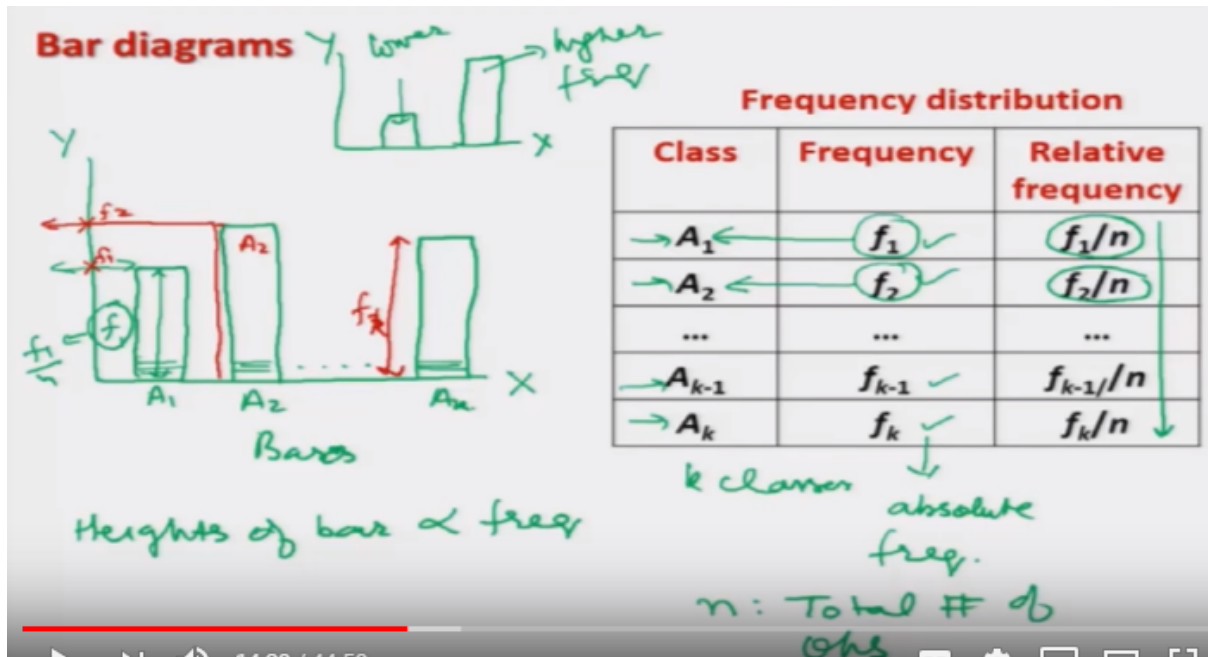 Bar diagrams
Y lower
higher
freq
X
Y
f2
f1
A2
f
f1
n
fk
X
A1 A2 .... Ak
Bars
Heights of bar ∝ freq
Frequency distribution
Class Frequency Relative frequency
A1 f1 f1/n
A2 f2 f2/n
... ... ...
Ak-1 fk-1 fk-1//n
Ak fk fk/n
k classes
absolute
freq.
n: Total # of
obs